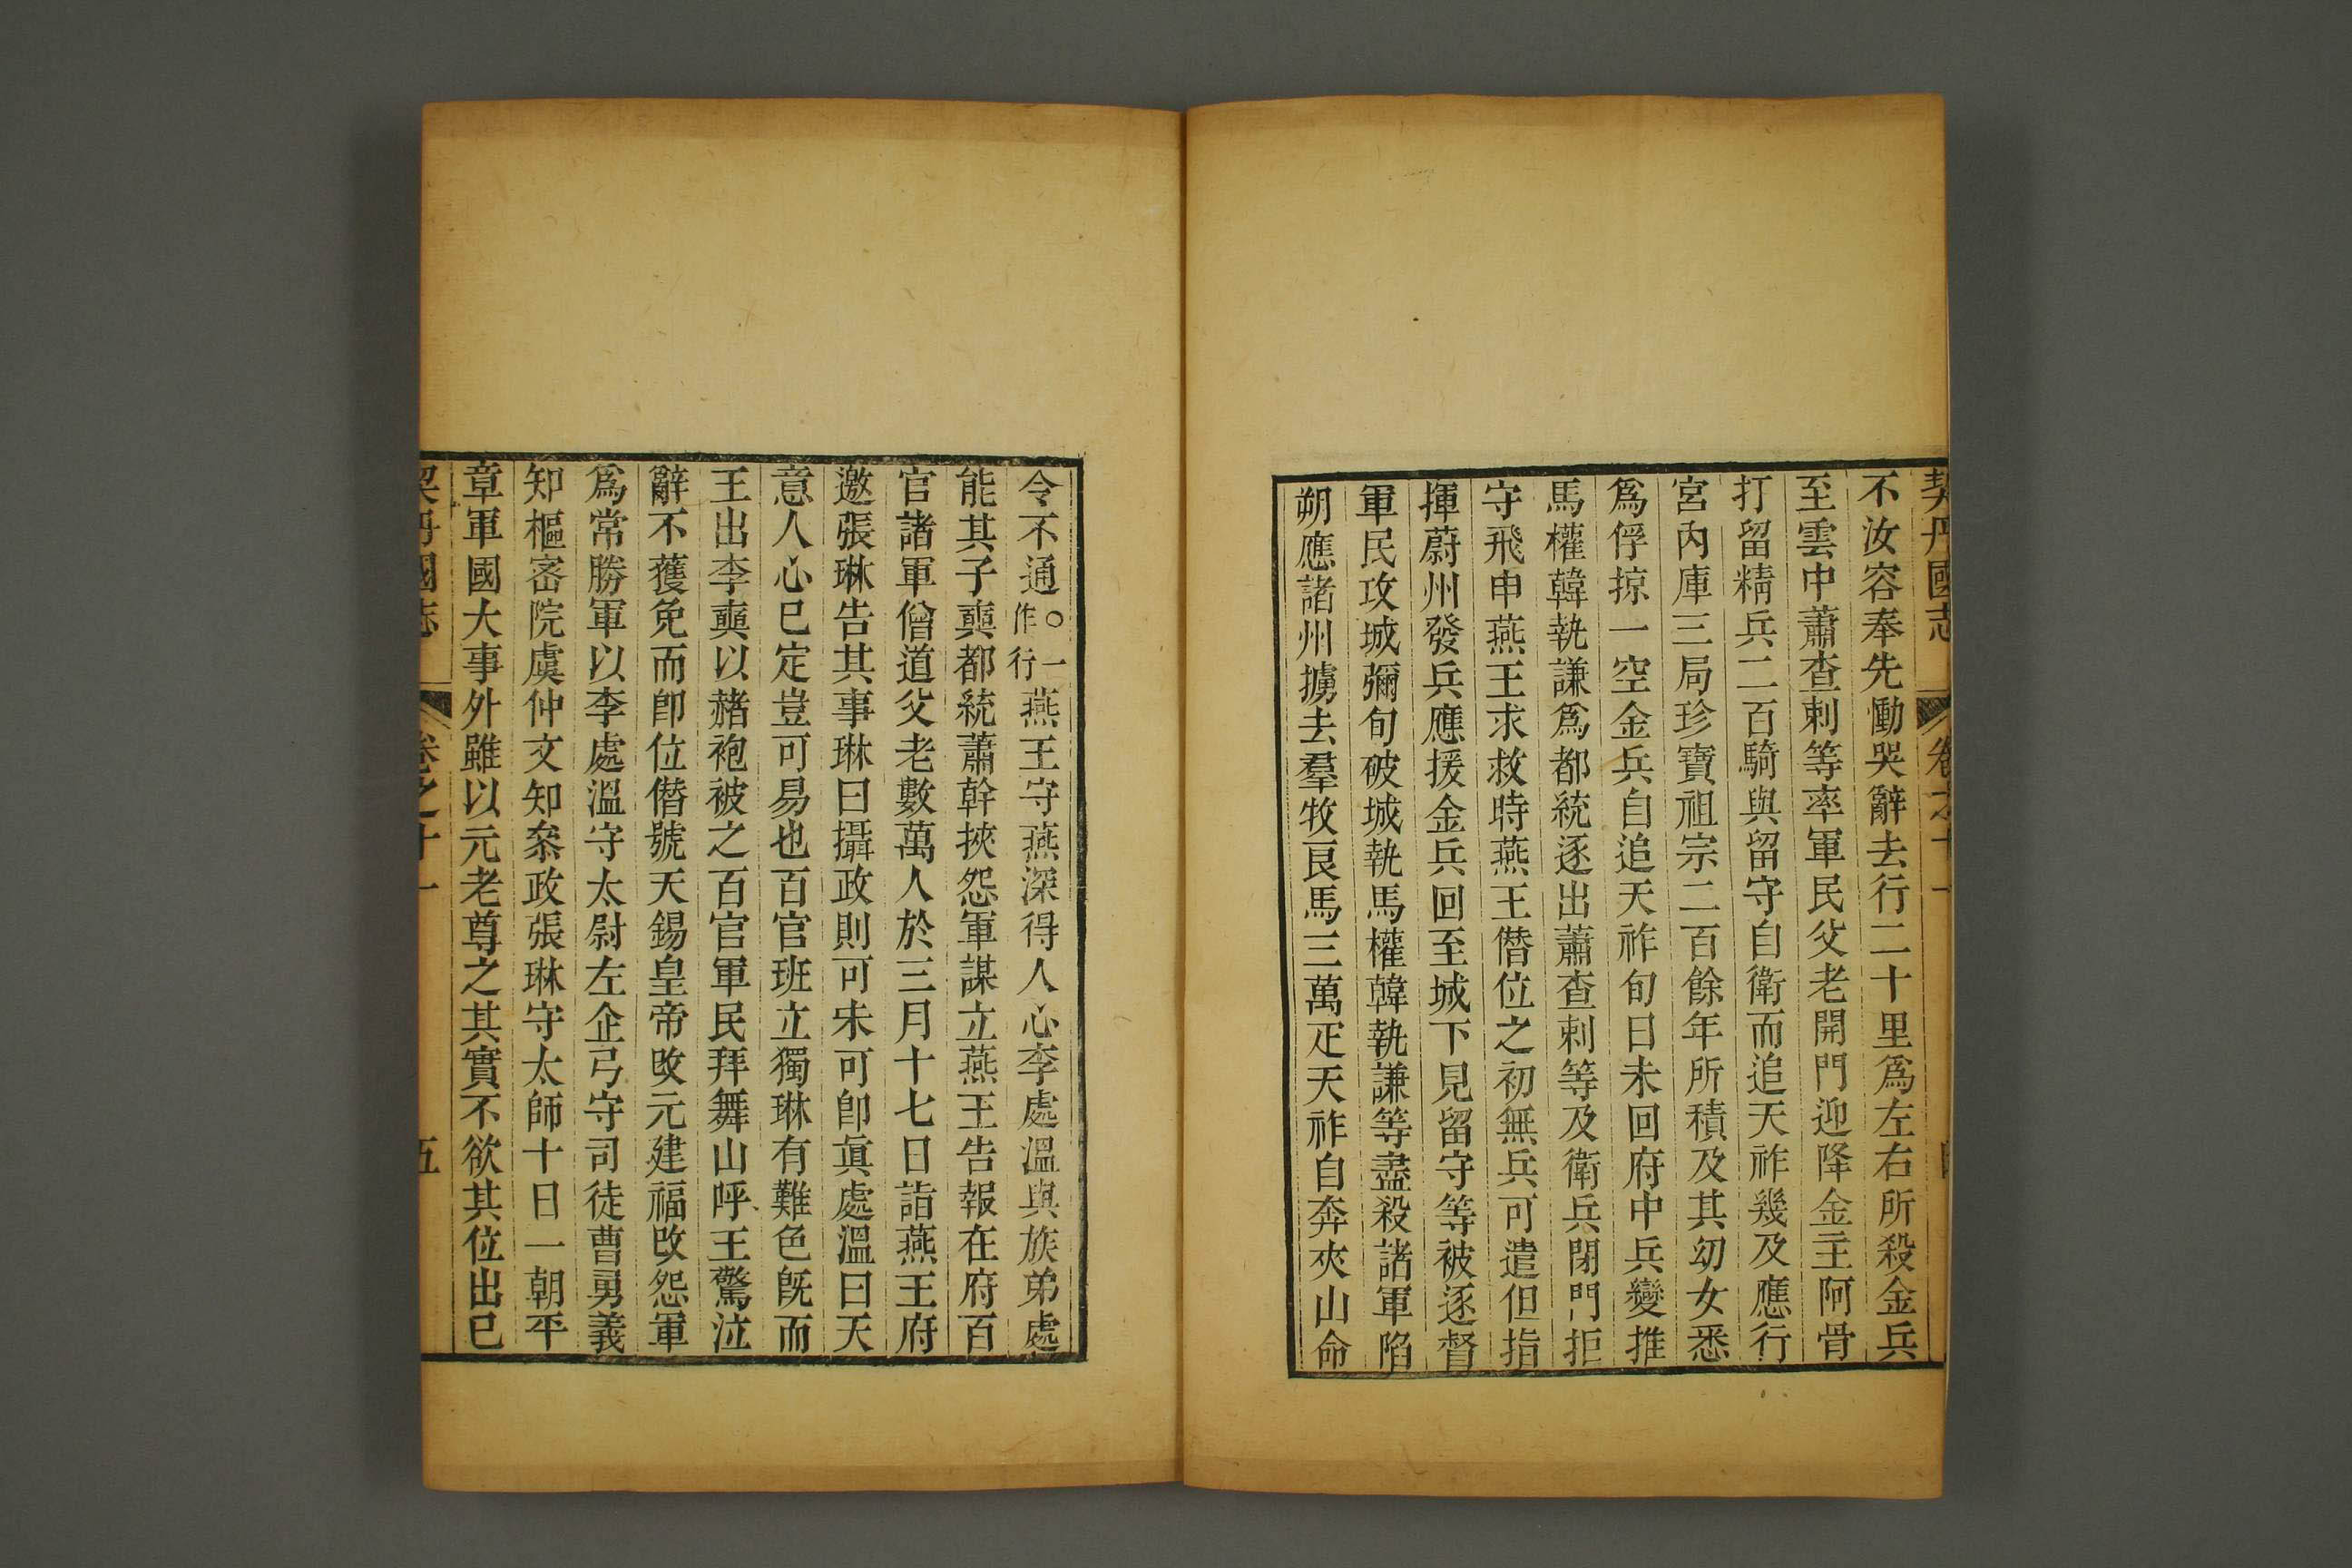 契丹國志 卷之十一
不汝容奉先慟哭辭去行二十里爲左右所殺金兵
至雲中蕭查剌等率軍民父老開門迎降金主阿骨
打留精兵二百騎與留守自衛而追天祚幾及應行
宮內庫三局珍寶祖宗二百餘年所積及其幼女悉
爲俘掠一空金兵自追天祚旬日未回府中兵變推
馬權韓執謙爲都統逐出蕭查剌等及衛兵閉門拒
守飛申燕王求救時燕王僭位之初無兵可遣但指
揮蔚州發兵應援金兵回至城下見留守等被逐督
軍民攻城彌旬破城執馬權韓執謙等盡殺諸軍陷
朔應諸州擄去羣牧良馬三萬疋天祚自奔夾山命
令不通○一作行燕王守燕深得人心李處溫與族弟處
能其子奭都統蕭幹挾怨軍謀立燕王告報在府百
官諸軍僧道父老數萬人於三月十七日詣燕王府
邀張琳告其事琳曰攝政則可未可卽眞處溫曰天
意人心已定豈可易也百官班立獨琳有難色旣而
王出李奭以赭袍被之百官軍民拜舞山呼王驚泣
辭不獲免而卽位僭號天錫皇帝改元建福改怨軍
爲常勝軍以李處溫守太尉左企弓守司徒曹勇義
知樞密院虞仲文知叅政張琳守太師十日一朝平
章軍國大事外雖以元老尊之其實不欲其位出己
契丹國志 卷之十一 五